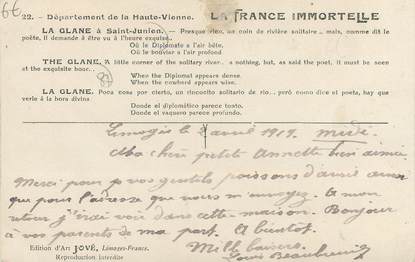 6€
22. - Département de la Haute-Vienne. LA FRANCE IMMORTELLE
LA GLANE à Saint-Junien. — Presque rien, un coin de rivière solitaire .. mais, comme dit le
poète, il demande à être vu à l'heure exquise..
Où le Diplomate a l'air bête.
Où le bouvier a l'air profond
THE GLANE. A little corner of the solitary river.. a nothing, but, as said the poet, it must be seen
at the exquisite hour..
When the Diplomat appears dense.
When the cowherd appears wise.
LA GLANE. Poca cosa por cierto, un rinconito solitario de rio.. però como dice el poeta, hay que
verle à la hora divina
Donde el diplomático parece tonto.
Donde el vaquero parece profundo.
Limoges le 2 avril 1919. midi.
Ma chère petite Annette bien aimée
Merci pour vos gentils poissons d'avril ainsi
que pour l'adresse que vous m'envoyez. A mon
retour j'irai voir dans cette maison. Bonjour
à vos parents de ma part. A bientôt.
Mille baisers.
Louis
Edition d'Art JOVÉ, Limoges-France.
Reproduction interdite